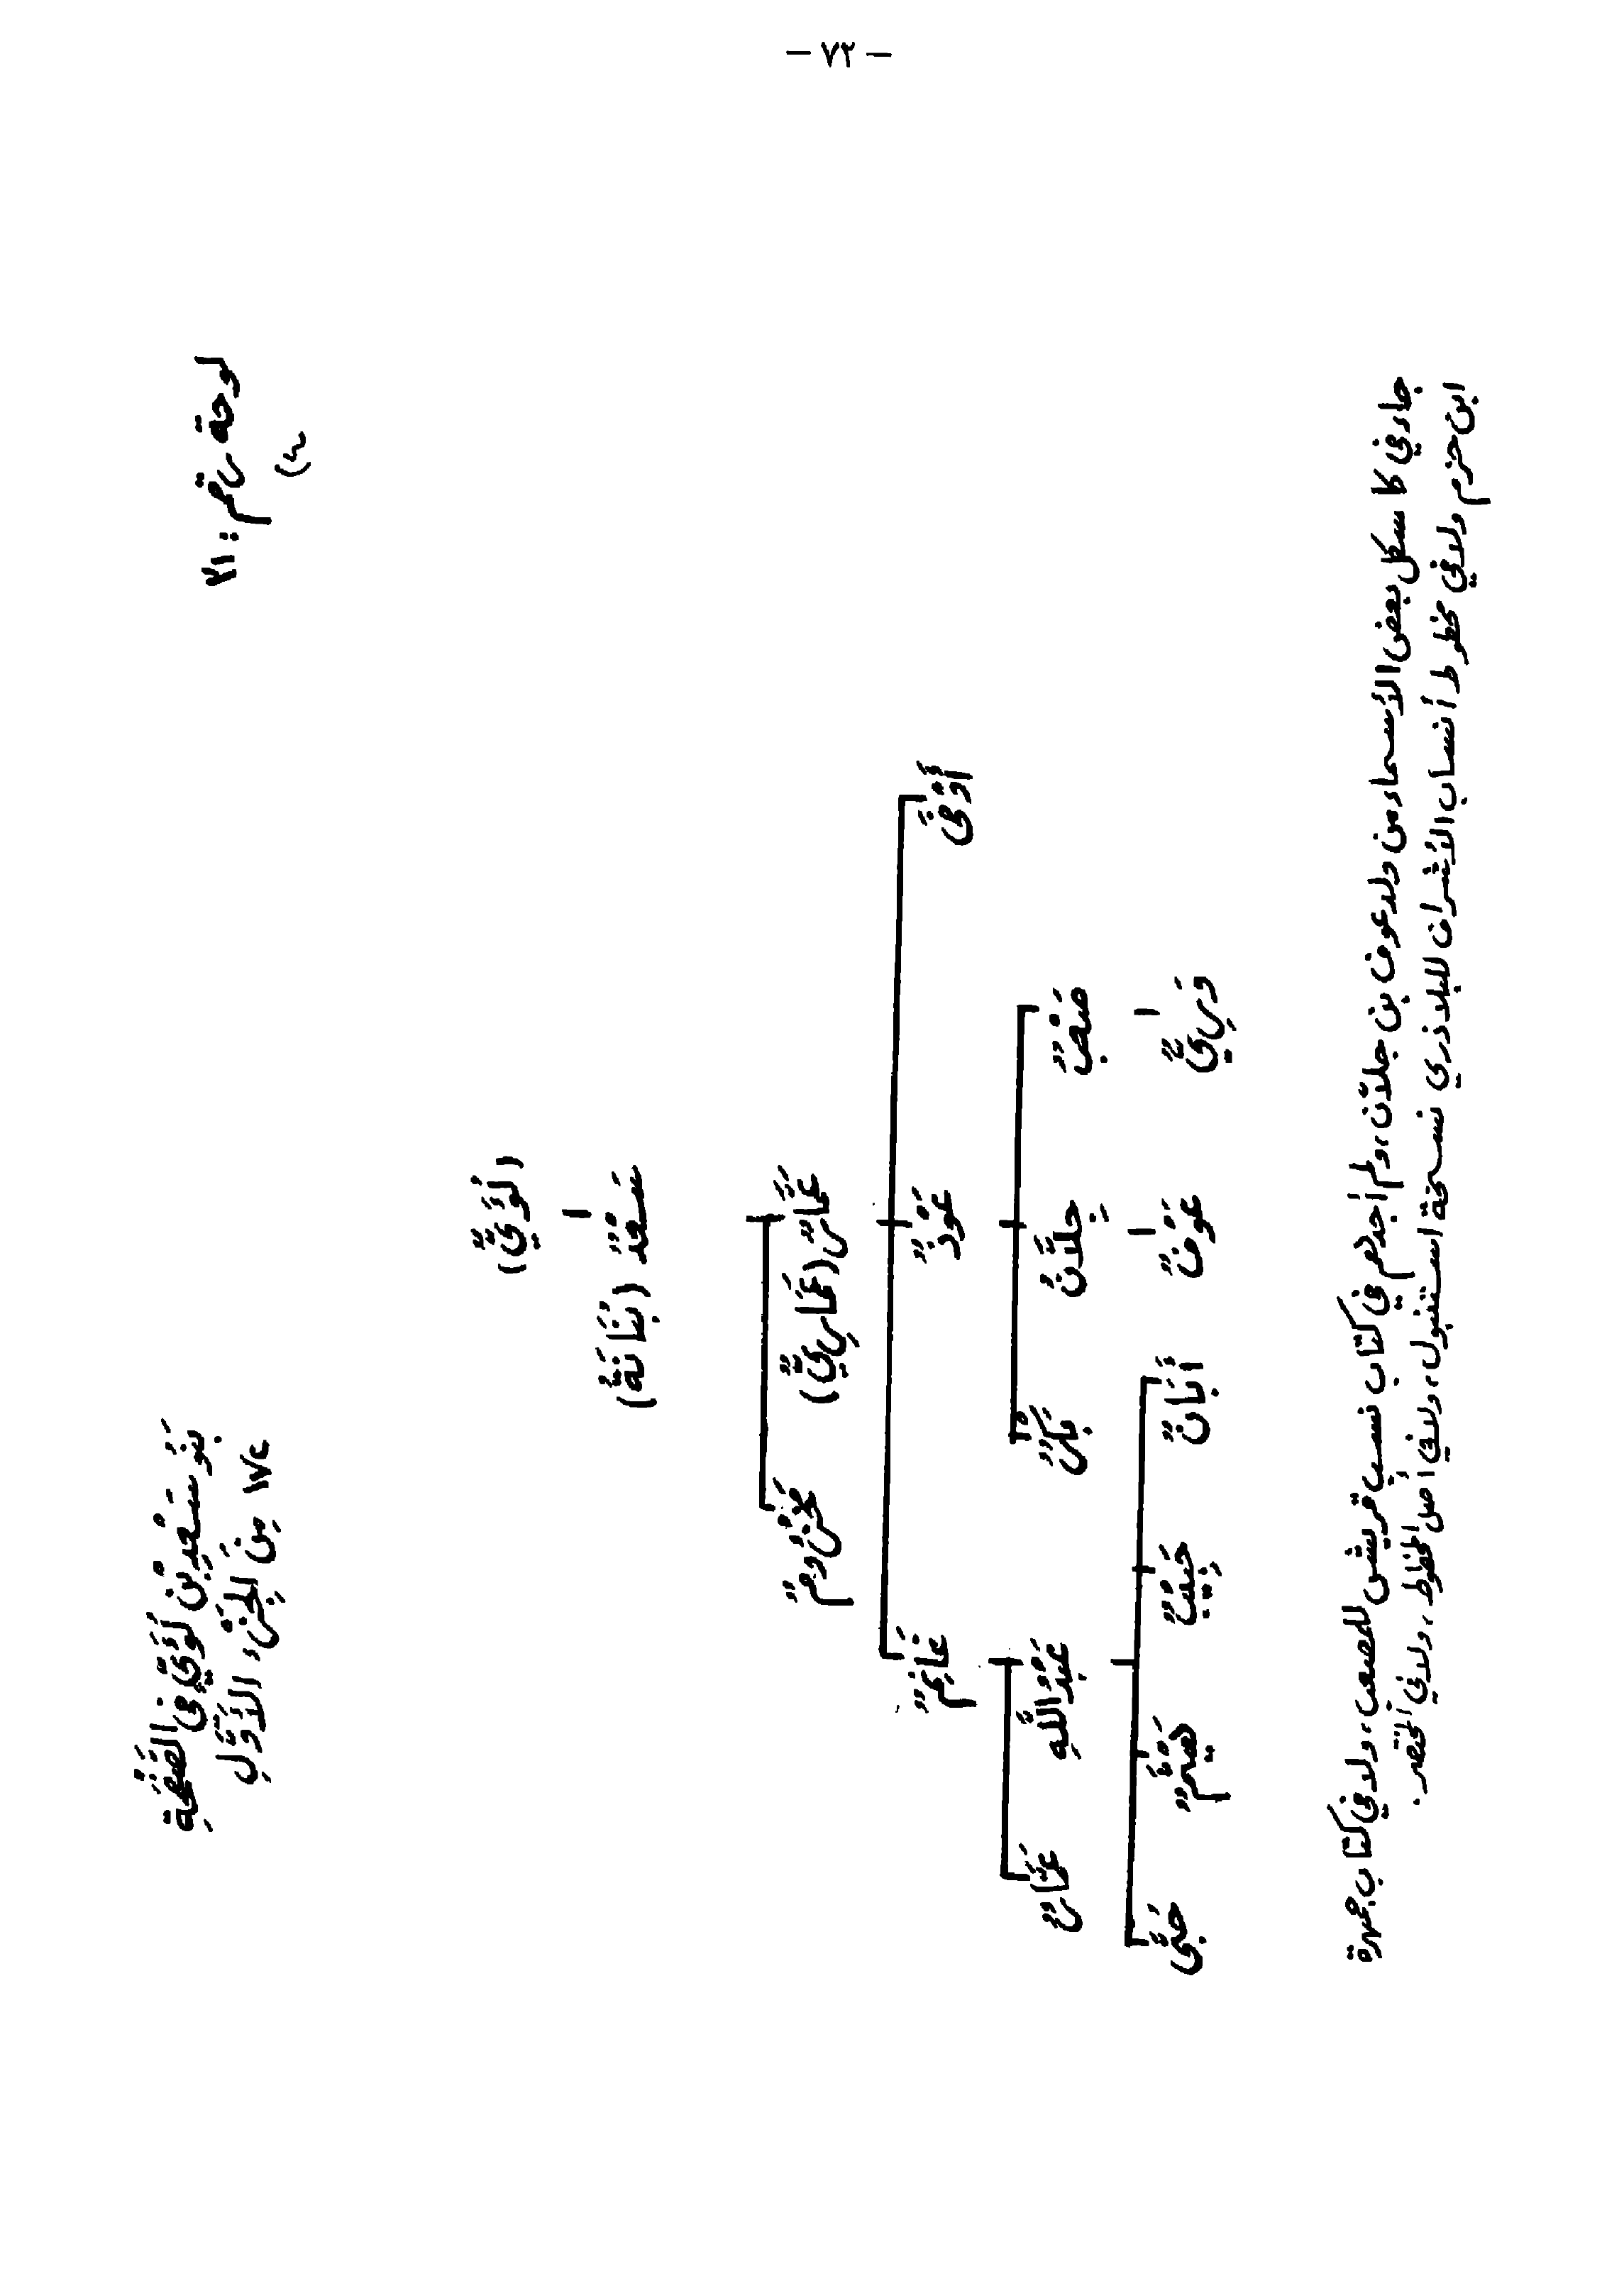 - ٧٢ -
لوحة رقم: ٢١
بَنُو سَعْدِ بْنِ لُؤَيٍّ فِي الصَّفْحَةِ
١٧٤ مِنَ الجُزْءِ الأَوَّلِ
(لُؤَيٌّ)
سَعْدٌ (بُنَانَةُ)
عَمَّارٌ (عَمَّارِيٌّ)
مَخْزُومٌ
أَوْفَى
عَوْذٌ
غَانِمٌ
صَعْبٌ
جِلَّانُ
بَكْرٌ
عَبْدُ اللَّهِ
عَمَّارٌ
وَرِيٌّ
عَوْفٌ
أَبَانٌ
حَبِيبٌ
هَيْثَمٌ
جاء في كاسكل بعض الأسماء من ولد عوف بن جلّان، ولم أجدهم في كتاب نسب قريش للمصعب، ولا في كتاب جمهرة
ابن حزم ولا في مخطوط أنساب الأشراف للبلاذري نسخة استنبول، ولا في أصل المخطوط، ولا في المختصر.